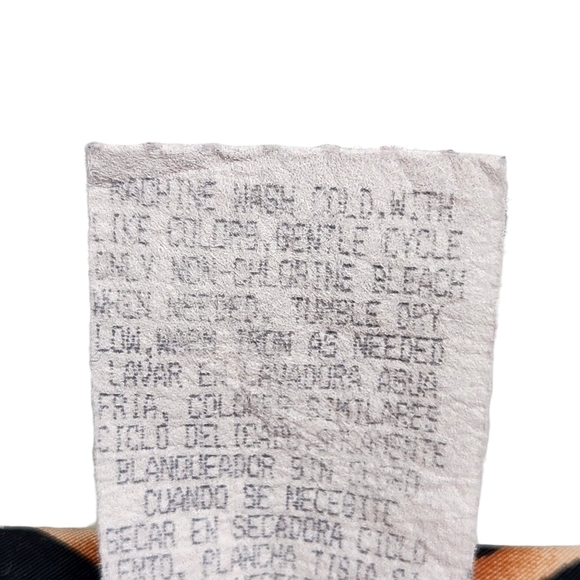 MACHINE WASH COLD, WITH
LIKE COLORS, GENTLE CYCLE
ONLY NON-CHLORINE BLEACH
WHEN NEEDED. TUMBLE DRY
LOW, WARM IRON AS NEEDED
LAVAR EN LAVADORA AGUA
FRIA, COLORES SIMILARES
CICLO DELICADO SOLAMENTE
BLANQUEADOR SIN CLORO
CUANDO SE NECESITE
SECAR EN SECADORA CICLO
LENTO, PLANCHA TIBIA